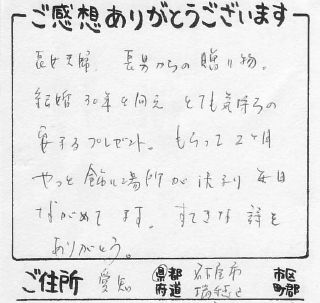 ご感想ありがとうございます
長女夫婦、長男からの贈り物。
結婚30年を向え とても気持ちの
安するプレゼント。もらって2ヶ月
やっと飾る場所が決まり 毎日
ながめてます。すてきな詩を
ありがとう。
ご住所 愛知 県都府道 名古屋市 瑞穂区 市区町郡